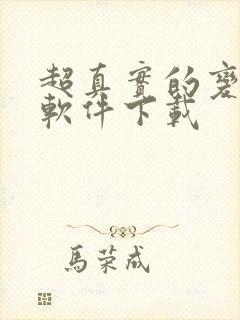 超真實的變
軟件下載
馬荣成